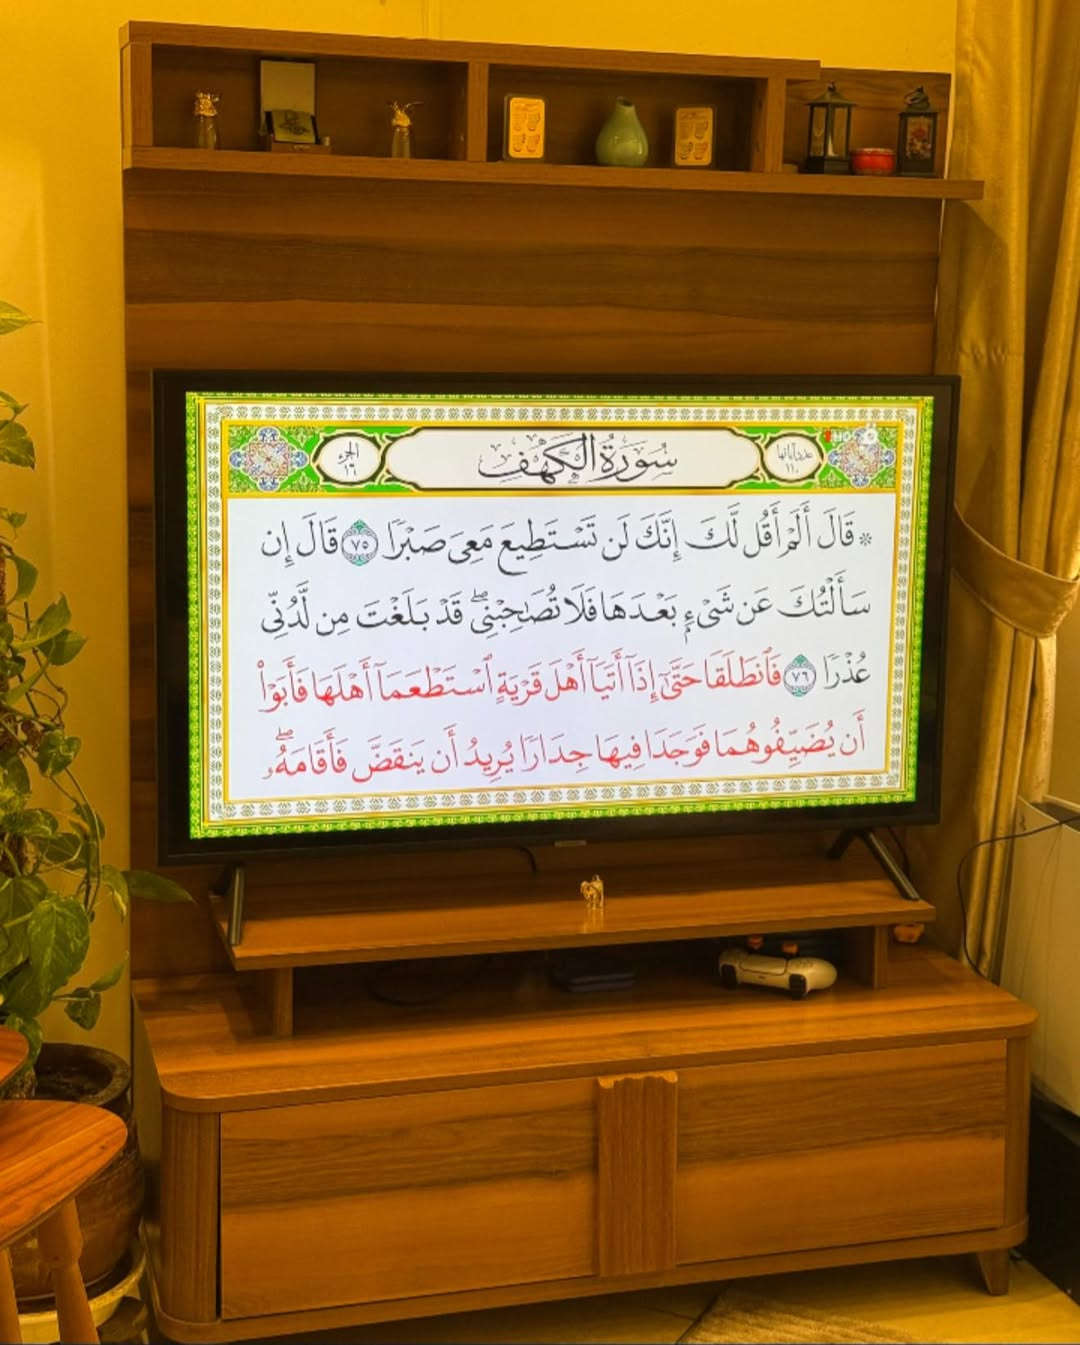 سُورَةُ الْكَهْفِ
الجزء
١٦
عدد آياتها
١١٠
۞ قَالَ أَلَمْ أَقُل لَّكَ إِنَّكَ لَن تَسْتَطِيعَ مَعِىَ صَبْرًا ٧٥ قَالَ إِن
سَأَلْتُكَ عَن شَىْءٍۭ بَعْدَهَا فَلَا تُصَٰحِبْنِى ۖ قَدْ بَلَغْتَ مِن لَّدُنِّى
عُذْرًا ٧٦ فَٱنطَلَقَا حَتَّىٰٓ إِذَآ أَتَيَآ أَهْلَ قَرْيَةٍ ٱسْتَطْعَمَآ أَهْلَهَا فَأَبَوْا۟
أَن يُضَيِّفُوهُمَا فَوَجَدَا فِيهَا جِدَارًا يُرِيدُ أَن يَنقَضَّ فَأَقَامَهُۥ ۖ